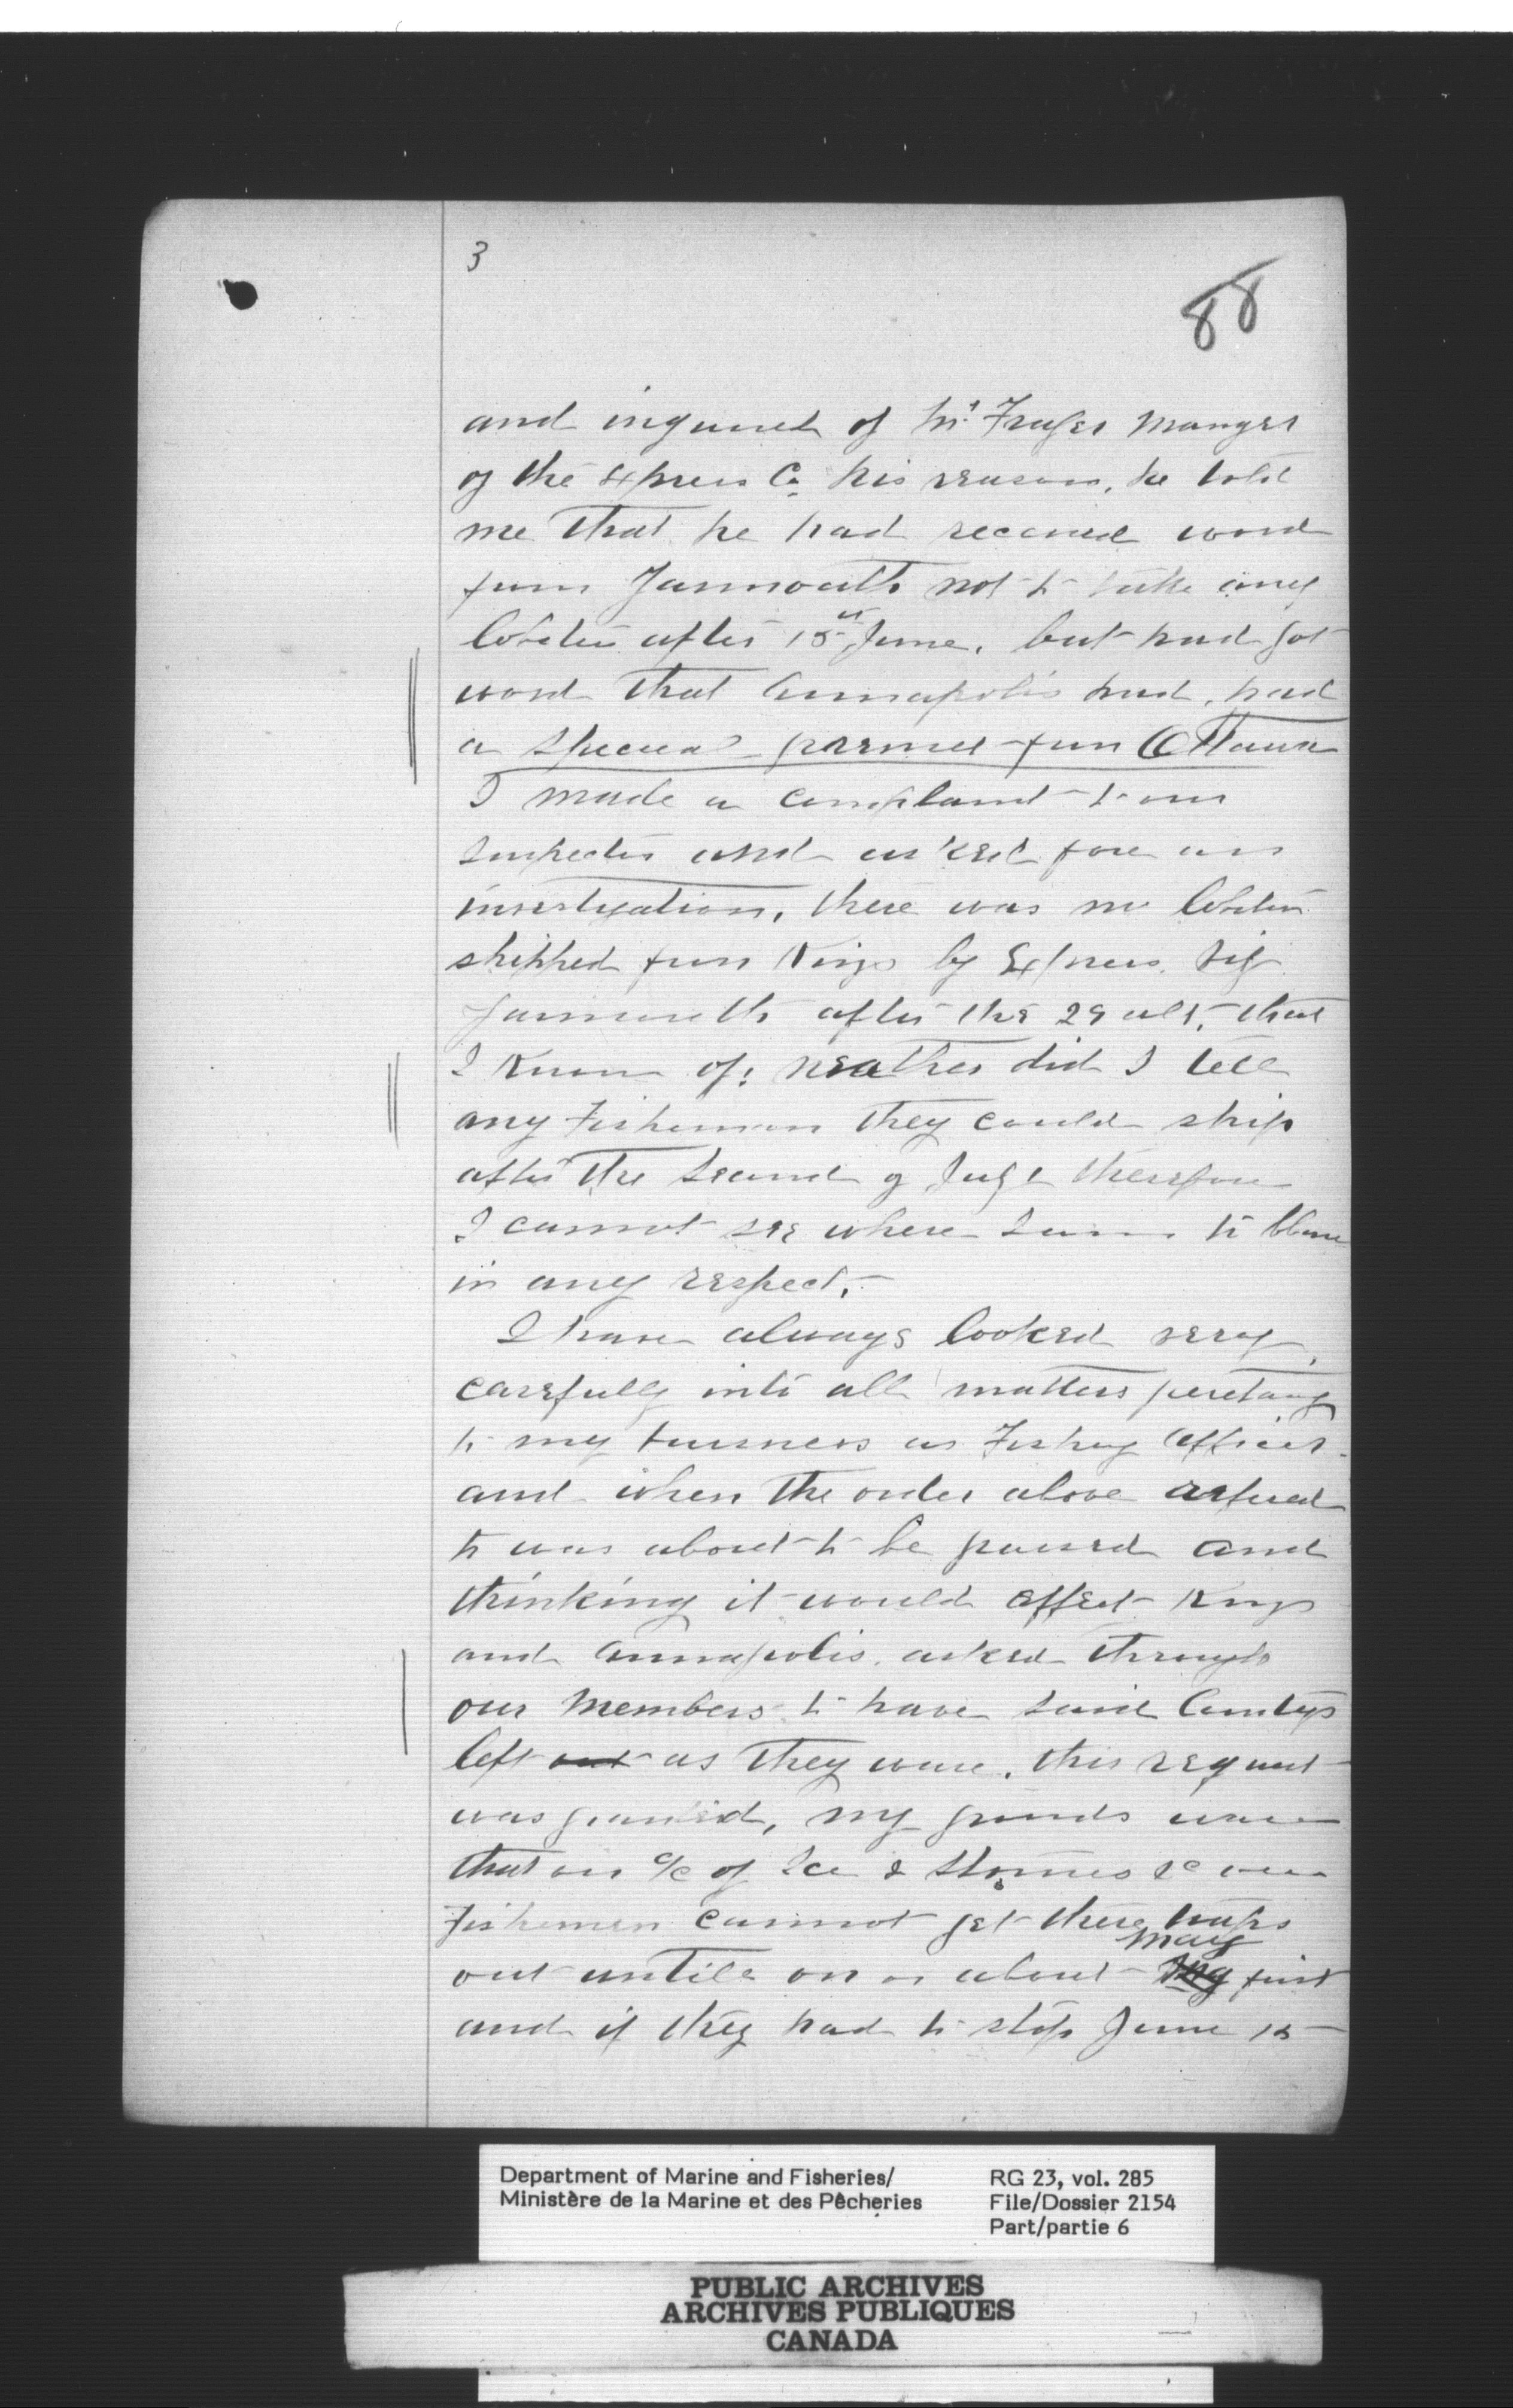 3
88
and inquired of Mr. Fraser Manger
of the Express Co. his reason, he told
me that he had received word
from Yarmouth not to take any
lobsters after 15th June, but had got
word that Annapolis had, had
a special permet from Ottawa
I made a complaint to our
Inspector and asked fore an
investigation, there was no lobsters
shipped from Kings by Express Dig
Yarmouth after the 29 ult, that
I know of; neather did I tell
any Fisherman they could ship
after the second of July therefore
I cannot see where I am to blame
in any respect,
I have always looked very
carefully into all matters pertang
to my buisness as Fishery Officer
and when the order above refered
to was about to be passed and
thinking it would effect Kings
and Annapolis, asked through
our Members to have said Countys
left out as they were, this request
was granted, my grounds were
that on a/c of Ice & Stormes &c our
Fishermen cannot get there traps
out untill on or about May first
and if they had to stop June 15
Department of Marine and Fisheries/
Ministère de la Marine et des Pêcheries
RG 23, vol. 285
File/Dossier 2154
Part/partie 6
PUBLIC ARCHIVES
ARCHIVES PUBLIQUES
CANADA